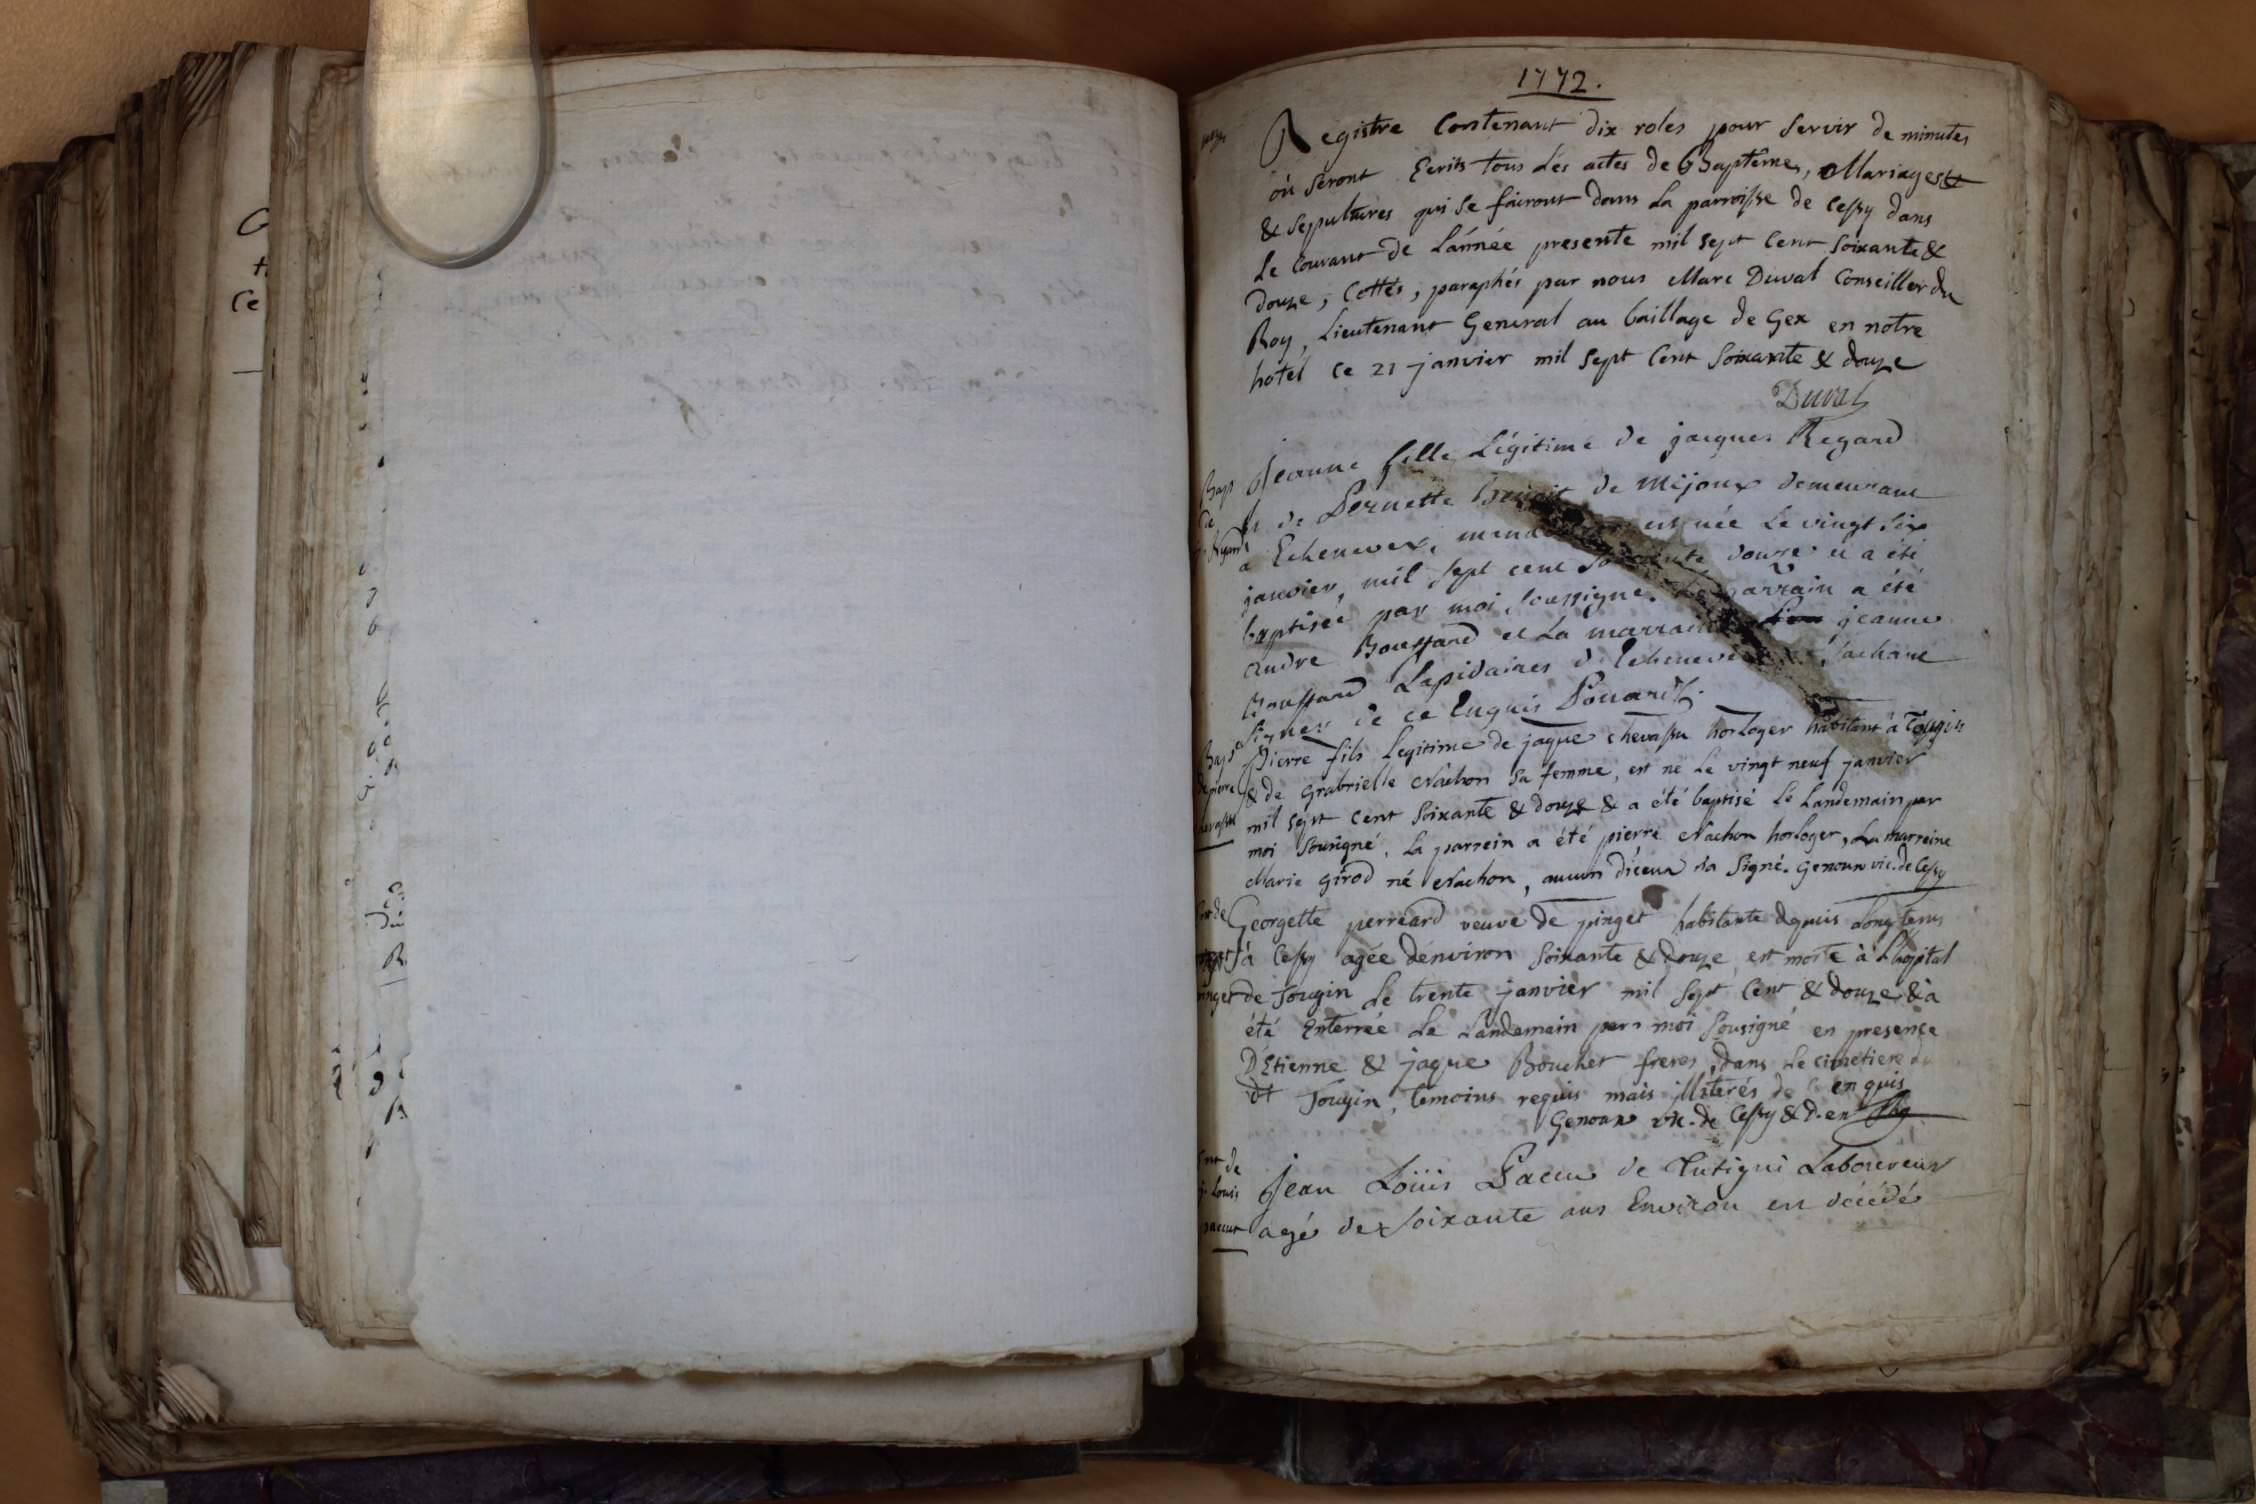 1772.
Registre Contenant dix roles pour servir de minutes
où seront Ecrits tous les actes de Baptême, Mariages
& sepultures qui se fairont dans la parroisse de Cessy dans
le Courant de L'année presente mil sept Cent soixante &
douze, Cottés, paraphés par nous Marc Duval Conseiller du
Roy, Lieutenant General au baillage de Gex en notre
hotel ce 21 janvier mil sept Cent Soixante & douze
Duval
Bap
de
Regard
Jeanne fille Légitime de jacques Regard
et de Pernette Benoit de Mijoux demeurant
a Echenevex, est née le vingt six
janvier, mil sept cent soixante douze et a été
baptisée par moi soussigné. Le parrain a été
andré Boussard et la marraine jeanne
Boussard Lapidaires d'Echenevex Sachant
signer de ce Enquis Pouard.
Bap
de pierre
chevassu
Pierre fils legitime de jaque chevassu horloger habitant à Tougin
& de Gabrielle Nachon sa femme, est né le vingt neuf janvier
mil sept cent soixante & douze & a été baptisé le Landemain par
moi sousigné. La parrein a été pierre Nachon horloger, La marreine
Marie girod né Nachon, aucun diceux n'a Signé. Genoux vic. de Cessy
pinget
Georgette perreard veuve de pinget habitante depuis Longtems
à Cessy agée d'environ soixante & douze est morte à L'hopital
de Tougin Le trente janvier mil sept Cent & douze & a
été Enterrée Le Landemain par moi sousigné en presence
D'Etienne & jaque Bouchet freres, dans le cimetiere du
dt Tougin, temoins requis mais illiterés de ce enquis
Genoux vic. de Cessy & d. en
de
j. Louis
pacut
Jean Loüis Pacut de Tutigni Laboureur
agé de soixante ans Environ est décédé